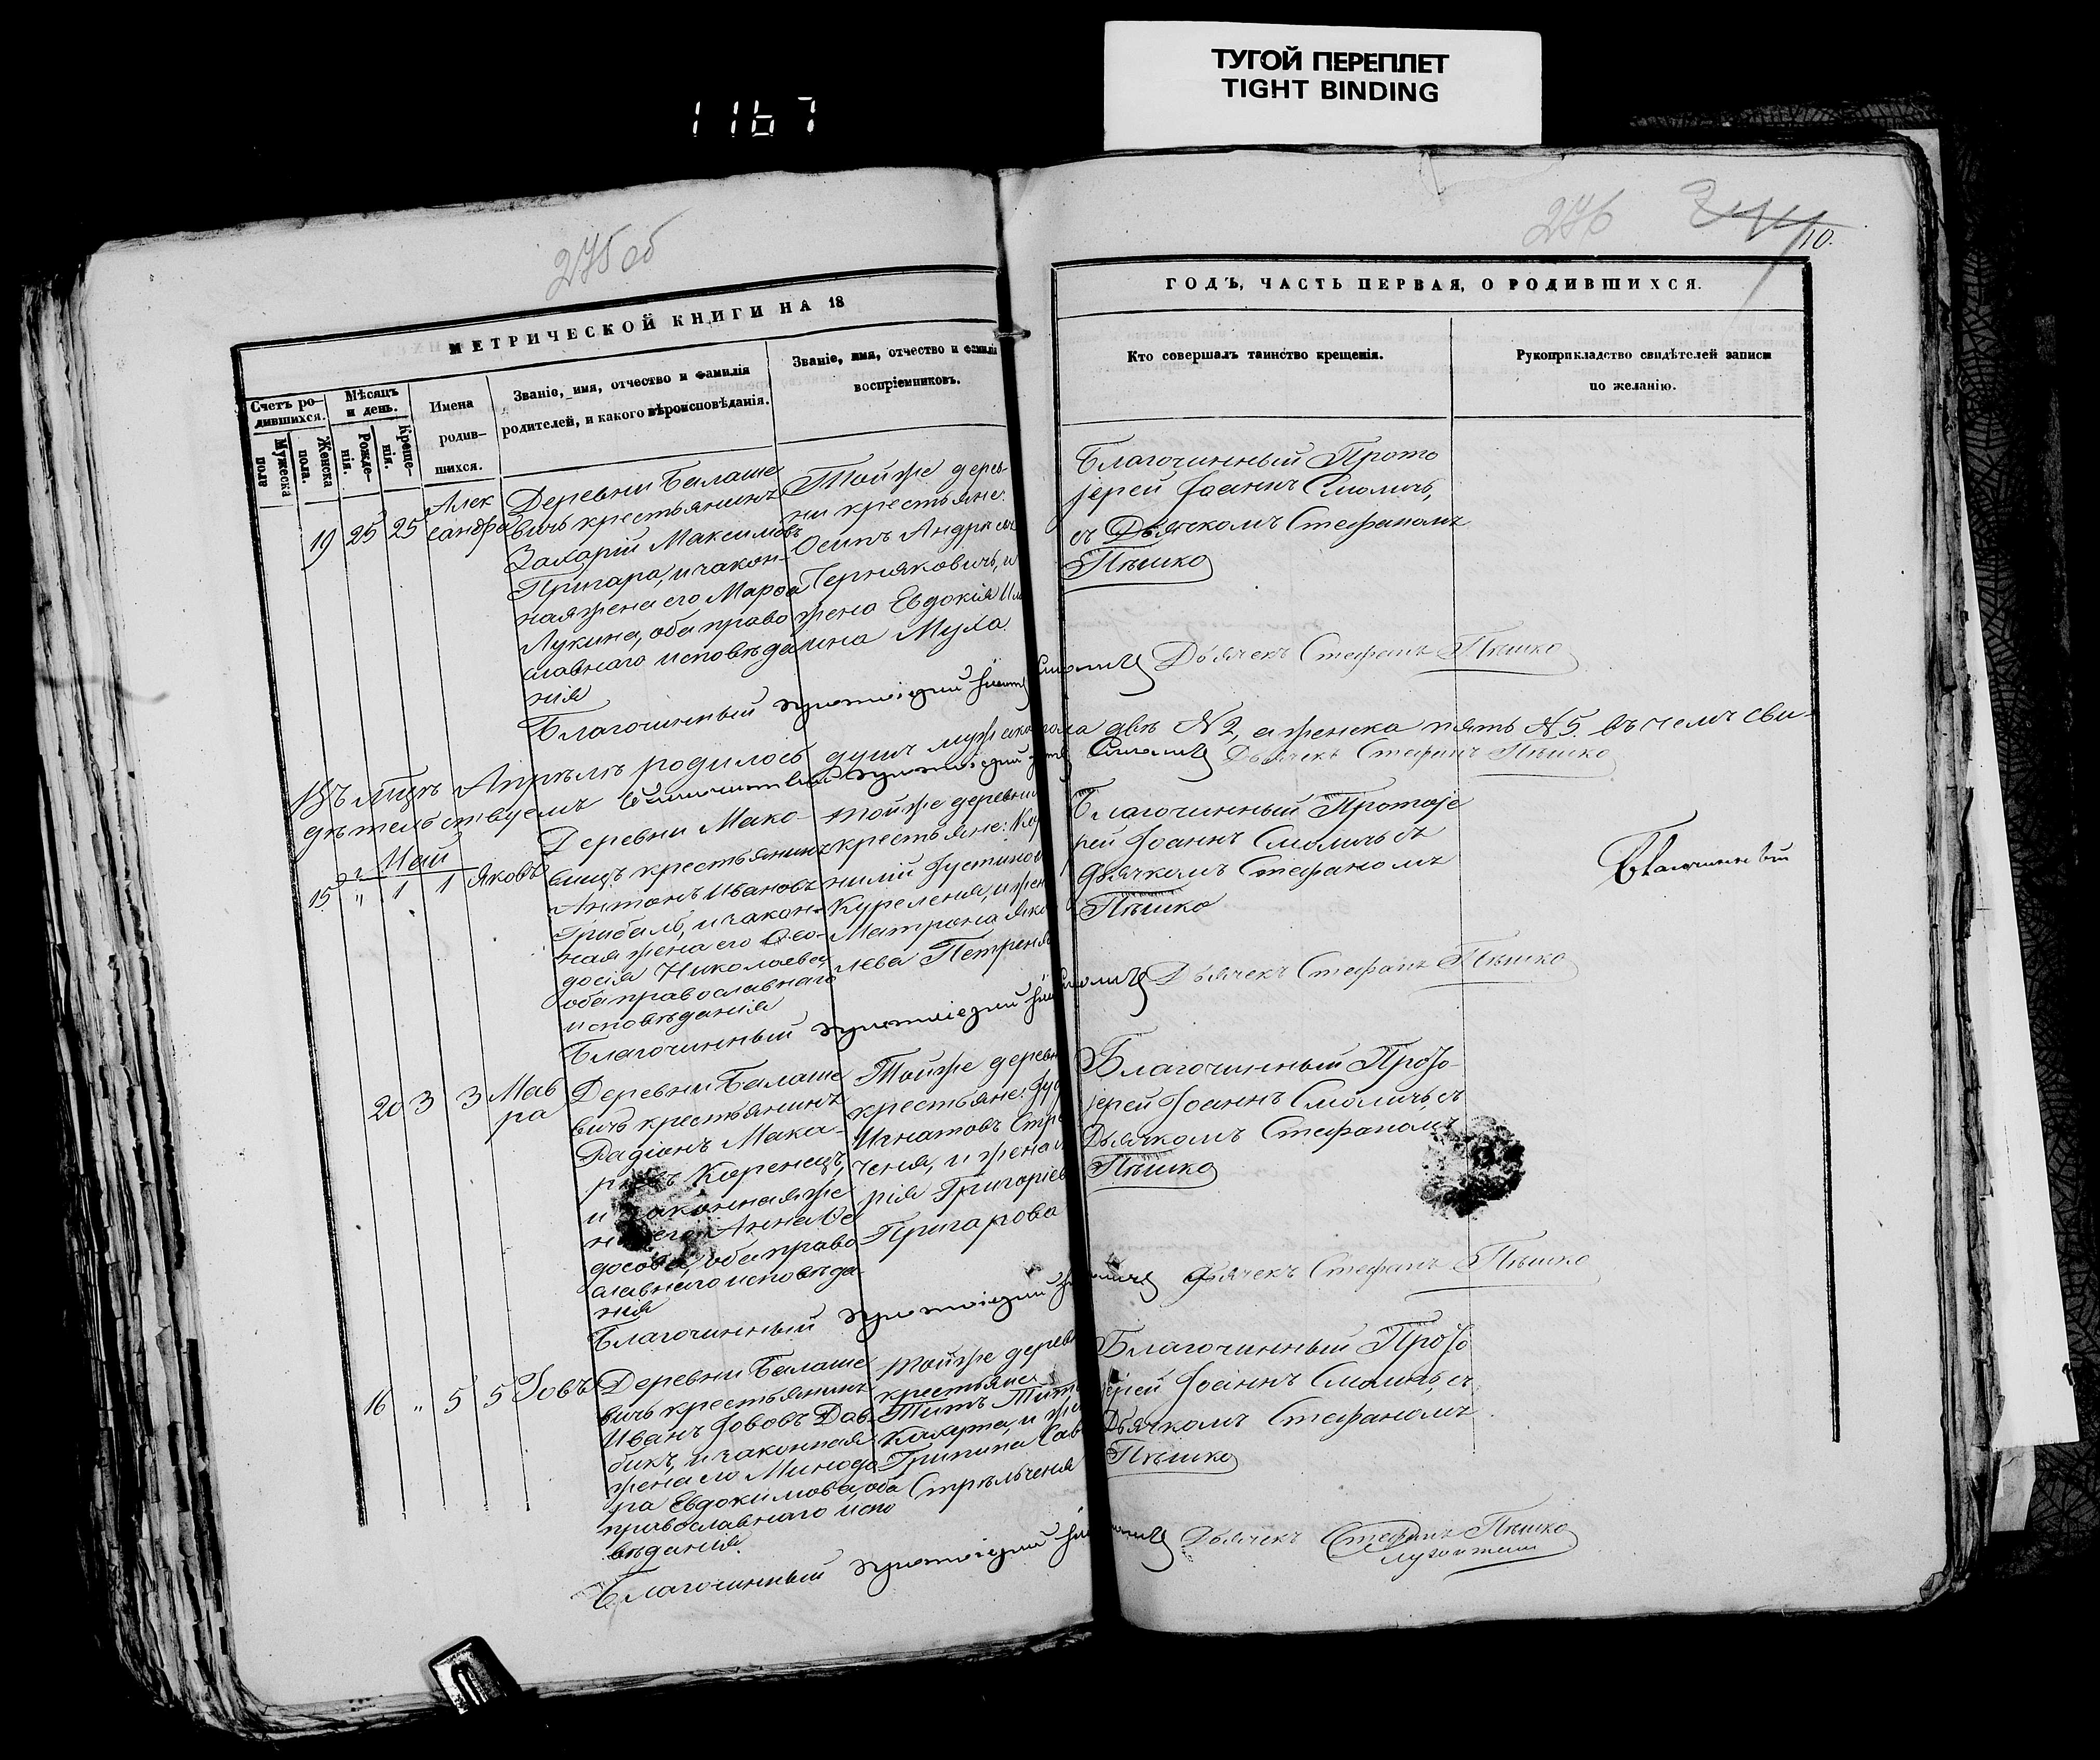 ТУГОЙ ПЕРЕПЛЕТ
TIGHT BINDING
1167
275 об
276
10.
МЕТРИЧЕСКОЙ КНИГИ НА 18
ГОДЪ, ЧАСТЬ ПЕРВАЯ, О РОДИВШИХСЯ.
Счетъ ро-
дившихся.
Мужеска
пола
Женска
пола.
Мѣсяцъ
и день.
Рожде-
нія.
Креще-
нія.
Имена
родив-
шихся.
Званіе, имя, отчество и фамилія
родителей, и какого вѣроисповѣданія.
Званіе, имя, отчество и фамилія
воспріемниковъ.
Кто совершалъ таинство крещенія.
Рукоприкладство свидѣтелей записи
по желанію.
19 25 25
Алек
сандра
Деревни Балаше
вичъ крестьянинъ
Захарій Максимовъ
Пригара, и закон-
ная жена его Марѳа
Лукина, оба право
славнаго исповѣда
нія
Тойже дерев-
ни крестьяне:
Осипъ Андреев
Черняковичъ, и
жена Евдокія
Муха.
Благочинный Прото
іерей Іоаннъ Смоличъ,
съ Дьячкомъ Стефаномъ
Пѣшко
Благочинный Протоіерей Смоличъ Дьячекъ Стефанъ Пѣшко
Въ мцѣ Апрѣлѣ родилось душъ мужска пола двѣ №2, а женска пять №5. въ чемъ сви-
дѣтельствуемъ Благочинный Протоіерей Смоличъ Дьячекъ Стефанъ Пѣшко
Май
15 " 1 1 Яковъ
Деревни Мако-
вищъ крестьянинъ
Антонъ Ивановъ
Грибаль, и закон-
ная жена его Ѳео-
досія Николаева,
оба православнаго
исповѣданія
Тойже деревни
крестьяне:
Іустинов
Куреленя, и жен
Матрона Яко
лева Петреня
Благочинный Протоіе
рей Іоаннъ Смоличъ съ
дьячкомъ Стефаномъ
Пѣшко
Благочинный
Благочинный Протоіерей Смоличъ Дьячекъ Стефанъ Пѣшко
20 3 3
Мав
ра
Деревни Балаше
вичъ крестьянинъ
Радіонъ Мака-
ровъ Коренецъ,
и законная же
на его Анна Ѳе
досова, оба право
славнаго исповѣда-
нія
Тойже деревн
крестьяне:
Игнатовъ Стре
ченя, и жена
рія Григоріев
Пригарова
Благочинный Прото-
іерей Іоаннъ Смоличъ, съ
Дьячкомъ Стефаномъ
Пѣшко
Благочинный Протоіерей Смоличъ Дьячекъ Стефанъ Пѣшко
16 " 5 5 Іовъ
Деревни Балаше
вичъ крестьянинъ
Иванъ Іововъ Дов-
бикъ, и законная
жена его Минодо
ра Евдокимова, оба
православнаго испо
вѣданія.
Тойже дерев
крестьяне
Титъ Тито
и же
Грипина Сав
Стрѣльченя
Благочинный Прото
іерей Іоаннъ Смоличъ, съ
Дьячкомъ Стефаномъ
Пѣшко
Благочинный Протоіерей Смоличъ Дьячекъ Стефанъ Пѣшко